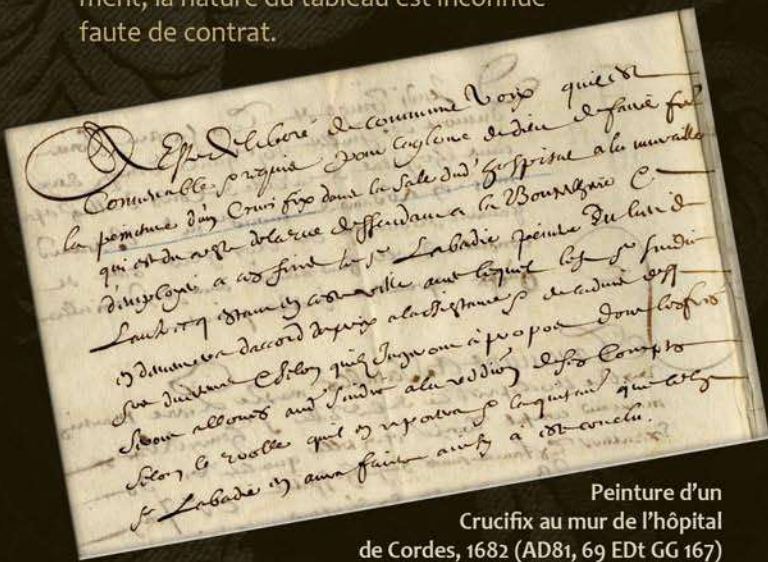 ment, la nature du tableau est inconnue
faute de contrat.
A Esté deliberé de commune voix quil est
Convenable & requis pour la gloire de dieu de faire
la peinture d'un Crucifix dans la sale dud' hospital a la muraille
qui est du costé de la rue dessendant a la Bouscharie &
d'employer a ces fins le sr Labadie peintre du lieu de
Lautrecq estant en ceste ville avec lequel led sr sindic
en demeurera d'accord du prix a l'assistance
& selon quilz jugeront à propos dont les frais
seront alloués aud sindic a la reddiõn de ses Comptes
selon le rolle quil en raportera & la quitance que led
sr Labadie en aura faite ainsy a esté conclu.
Peinture d'un
Crucifix au mur de l'hôpital
de Cordes, 1682 (AD81, 69 EDt GG 167)